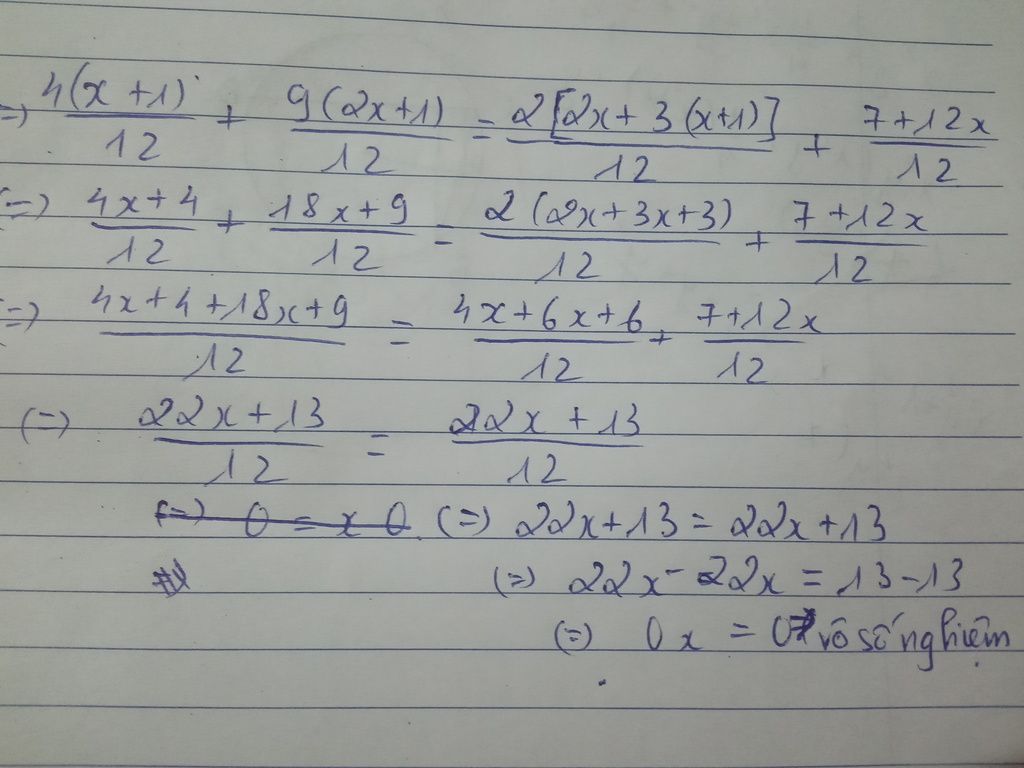 =) 4(x+1)/12 + 9(2x+1)/12 = 2[2x+3(x+1)]/12 + 7+12x/12
(=) 4x+4/12 + 18x+9/12 = 2(2x+3x+3)/12 + 7+12x/12
(=) 4x+4+18x+9/12 = 4x+6x+6/12 + 7+12x/12
(=) 22x+13/12 = 22x+13/12
(=) 0 = x 0 (=) 22x+13 = 22x+13
(=) 22x-22x = 13-13
(=) 0x = 0 vô số nghiệm